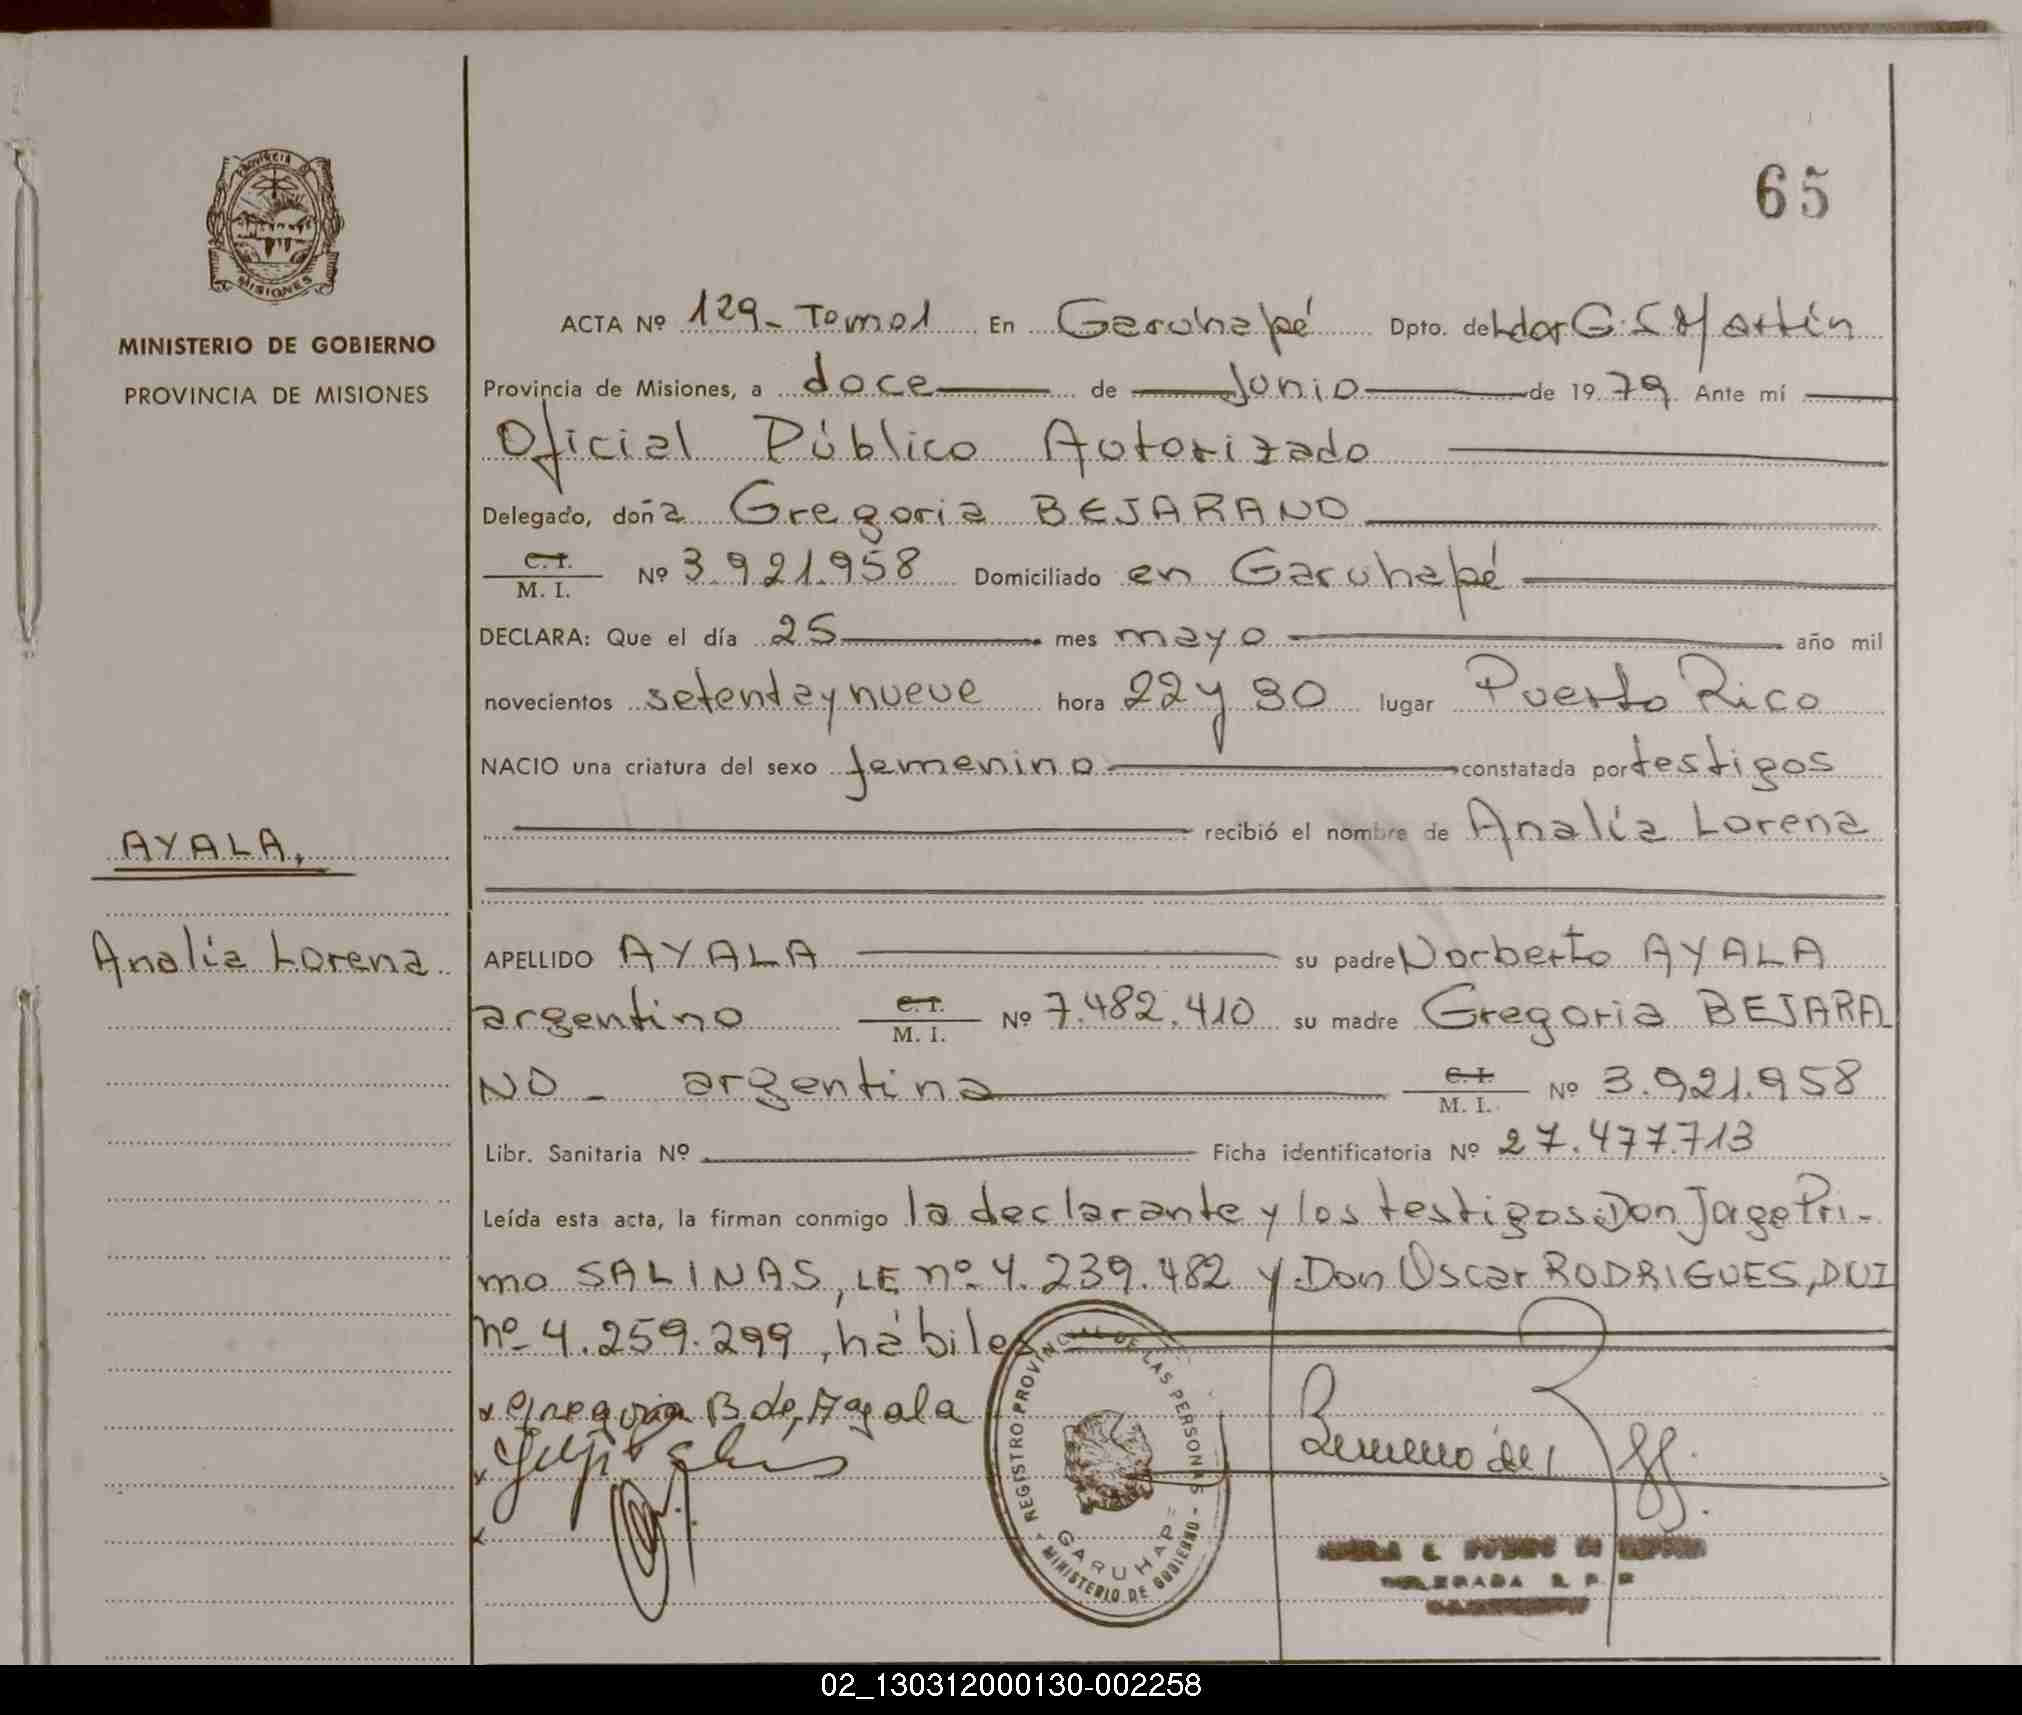 65
PROVINCIA
MISIONES
MINISTERIO DE GOBIERNO
PROVINCIA DE MISIONES
AYALA,
Analía Lorena
ACTA Nº 129-Tomo1 En Garuhapé Dpto. de Ldor G. S Martín
Provincia de Misiones, a doce de Junio de 1979 Ante mí
Oficial Público Autorizado
Delegado, doña Gregoria BEJARANO
C. I.
M. I. Nº 3.921.958 Domiciliado en Garuhapé
DECLARA: Que el día 25 mes mayo año mil
novecientos setenta y nueve hora 22 y 30 lugar Puerto Rico
NACIO una criatura del sexo femenino constatada por testigos
recibió el nombre de Analía Lorena
APELLIDO AYALA su padre Norberto AYALA
argentino C. I. M. I. Nº 7.482.410 su madre Gregoria BEJARA
NO - argentina C. I. M. I. Nº 3.921.958
Libr. Sanitaria Nº Ficha identificatoria Nº 27.477.713
Leída esta acta, la firman conmigo la declarante y los testigos Don Jorge Pri-
mo SALINAS, LE nº 4.239.482 y Don Oscar RODRIGUES, DNI
nº 4.259.299, hábiles
Gregoria B de Ayala
REGISTRO PROVINCIAL DE LAS PERSONAS - MINISTERIO DE GOBIERNO -
GARUHAPE
DELEGADA R. P. P.
02_130312000130-002258